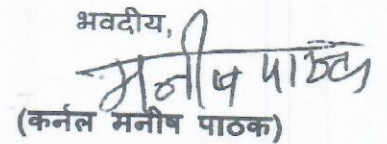 भवदीय,
मनीष पाठक
(कर्नल मनीष पाठक)